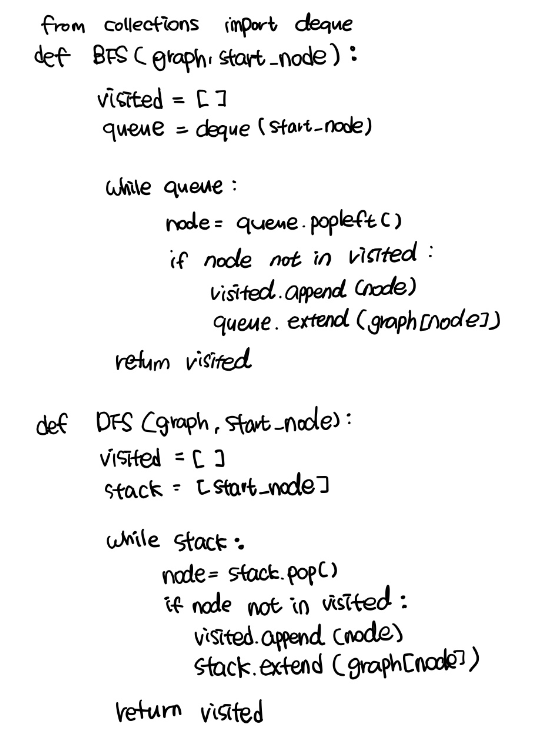 from collections import deque
def BFS(graph, start_node):
visited = []
queue = deque(start_node)
while queue:
node = queue.popleft()
if node not in visited:
visited.append(node)
queue.extend(graph[node])
return visited
def DFS(graph, start_node):
visited = []
stack = [start_node]
while stack:
node = stack.pop()
if node not in visited:
visited.append(node)
stack.extend(graph[node])
return visited